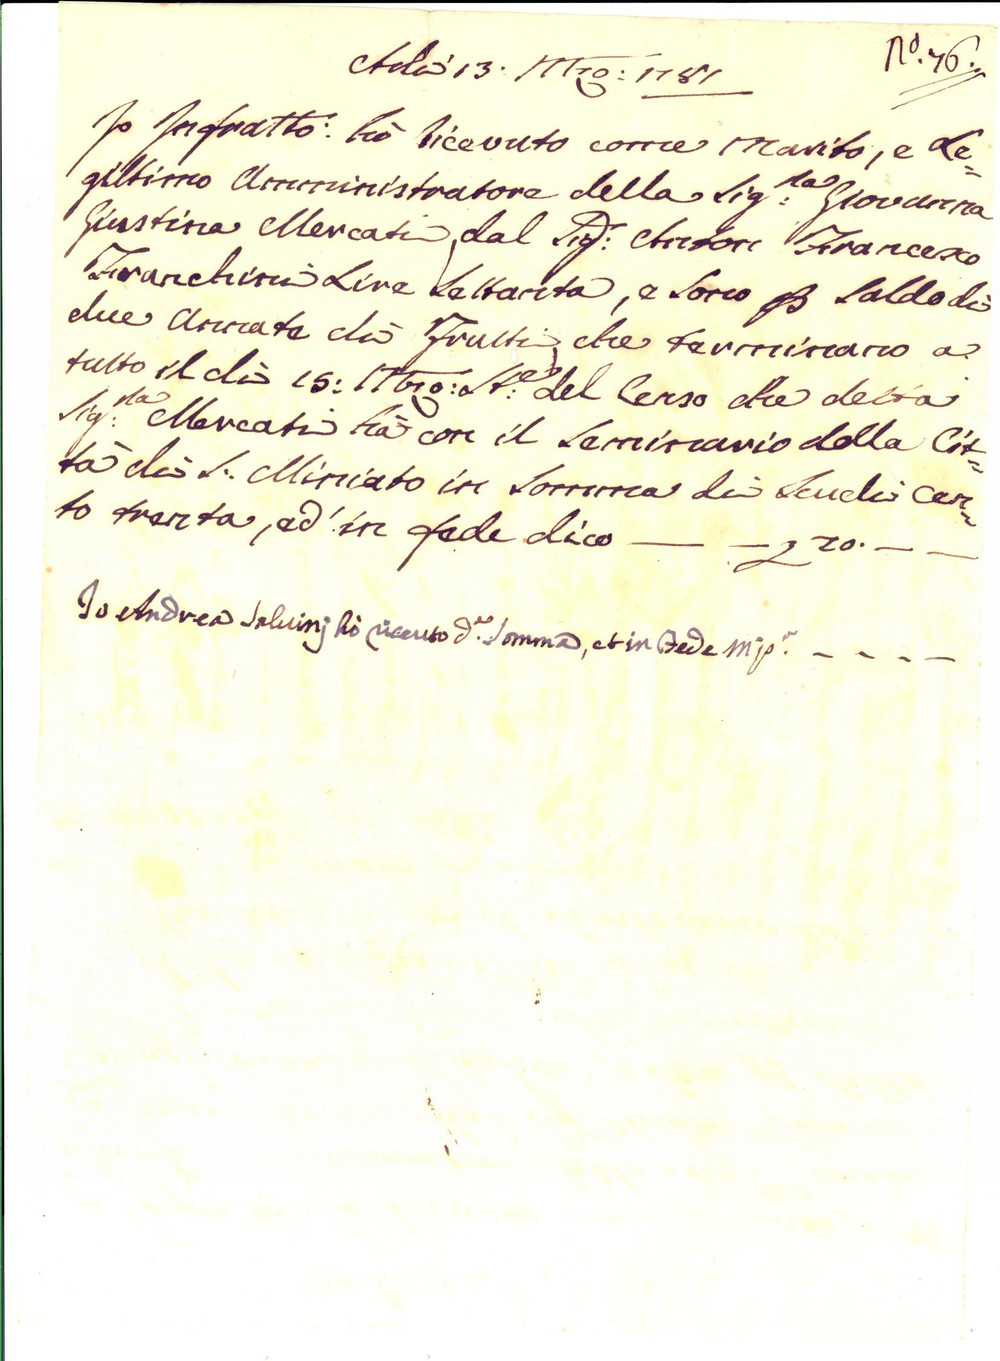 Nº. 76.
Adì 13. 9bre: 1781
Io Infratto: hò ricevuto come marito, e Le=
gittimo Amministratore della Sig:ra Giovanna
Giustina Mercati, dal Sig: Anton Francesco
Franchini Lire Settanta, e sono p saldo di
due Annate di Frutti, che terminano a
tutto il dì 15: 9bre: st:e del Censo che detta
Sig:ra Mercati hà con il Seminario della Cit=
tà di S. Miniato in somma di Scudi Cen=
to trenta, ed in fede dico — — £ 70. — —
Io Andrea Salvinj hò ricevuto d.a Somma, et in Fede Mjp.a - - - -